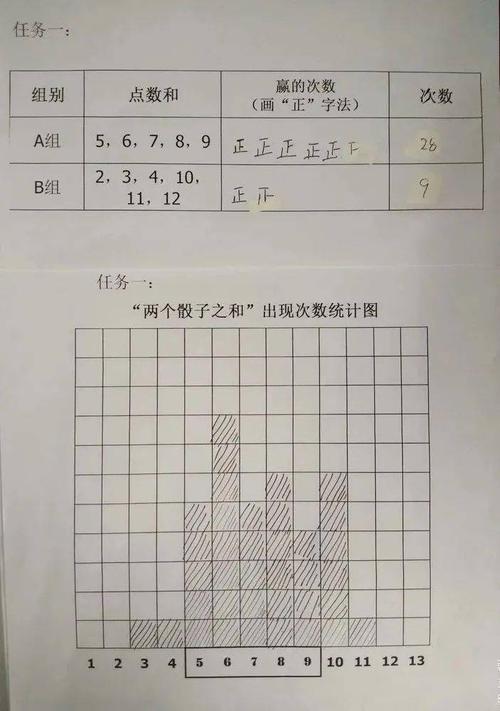 任务一：
组别 点数和 赢的次数 次数
（画“正”字法）
A组 5，6，7，8，9 正 正 正 正 正 下 28
B组 2，3，4，10， 正 9
11，12
任务一：
“两个骰子之和”出现次数统计图
1 2 3 4 5 6 7 8 9 10 11 12 13